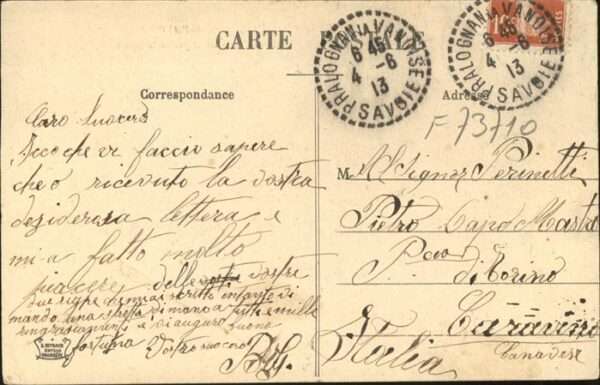 CARTE POSTALE
Correspondance
Adresse
PRALOGNAN-LA-VANOISE
6 45
4 -6
13
SAVOIE
PRALOGNAN-LA-VANOISE
6 45
4 -6
13
SAVOIE
F 73710
Caro Suocero
Ecco che vi faccio sapere
che o ricevuto la vostra
desiderosa lettera e
mi a fatto molto
piacere delle vostre
due righe scritto
mando una
ringraziamenti e vi auguro buone
fortuna Vostro
M Al Signor Perinetti
Pietro Capo Mastro
di Torino
Caravino
Canavese
Italia